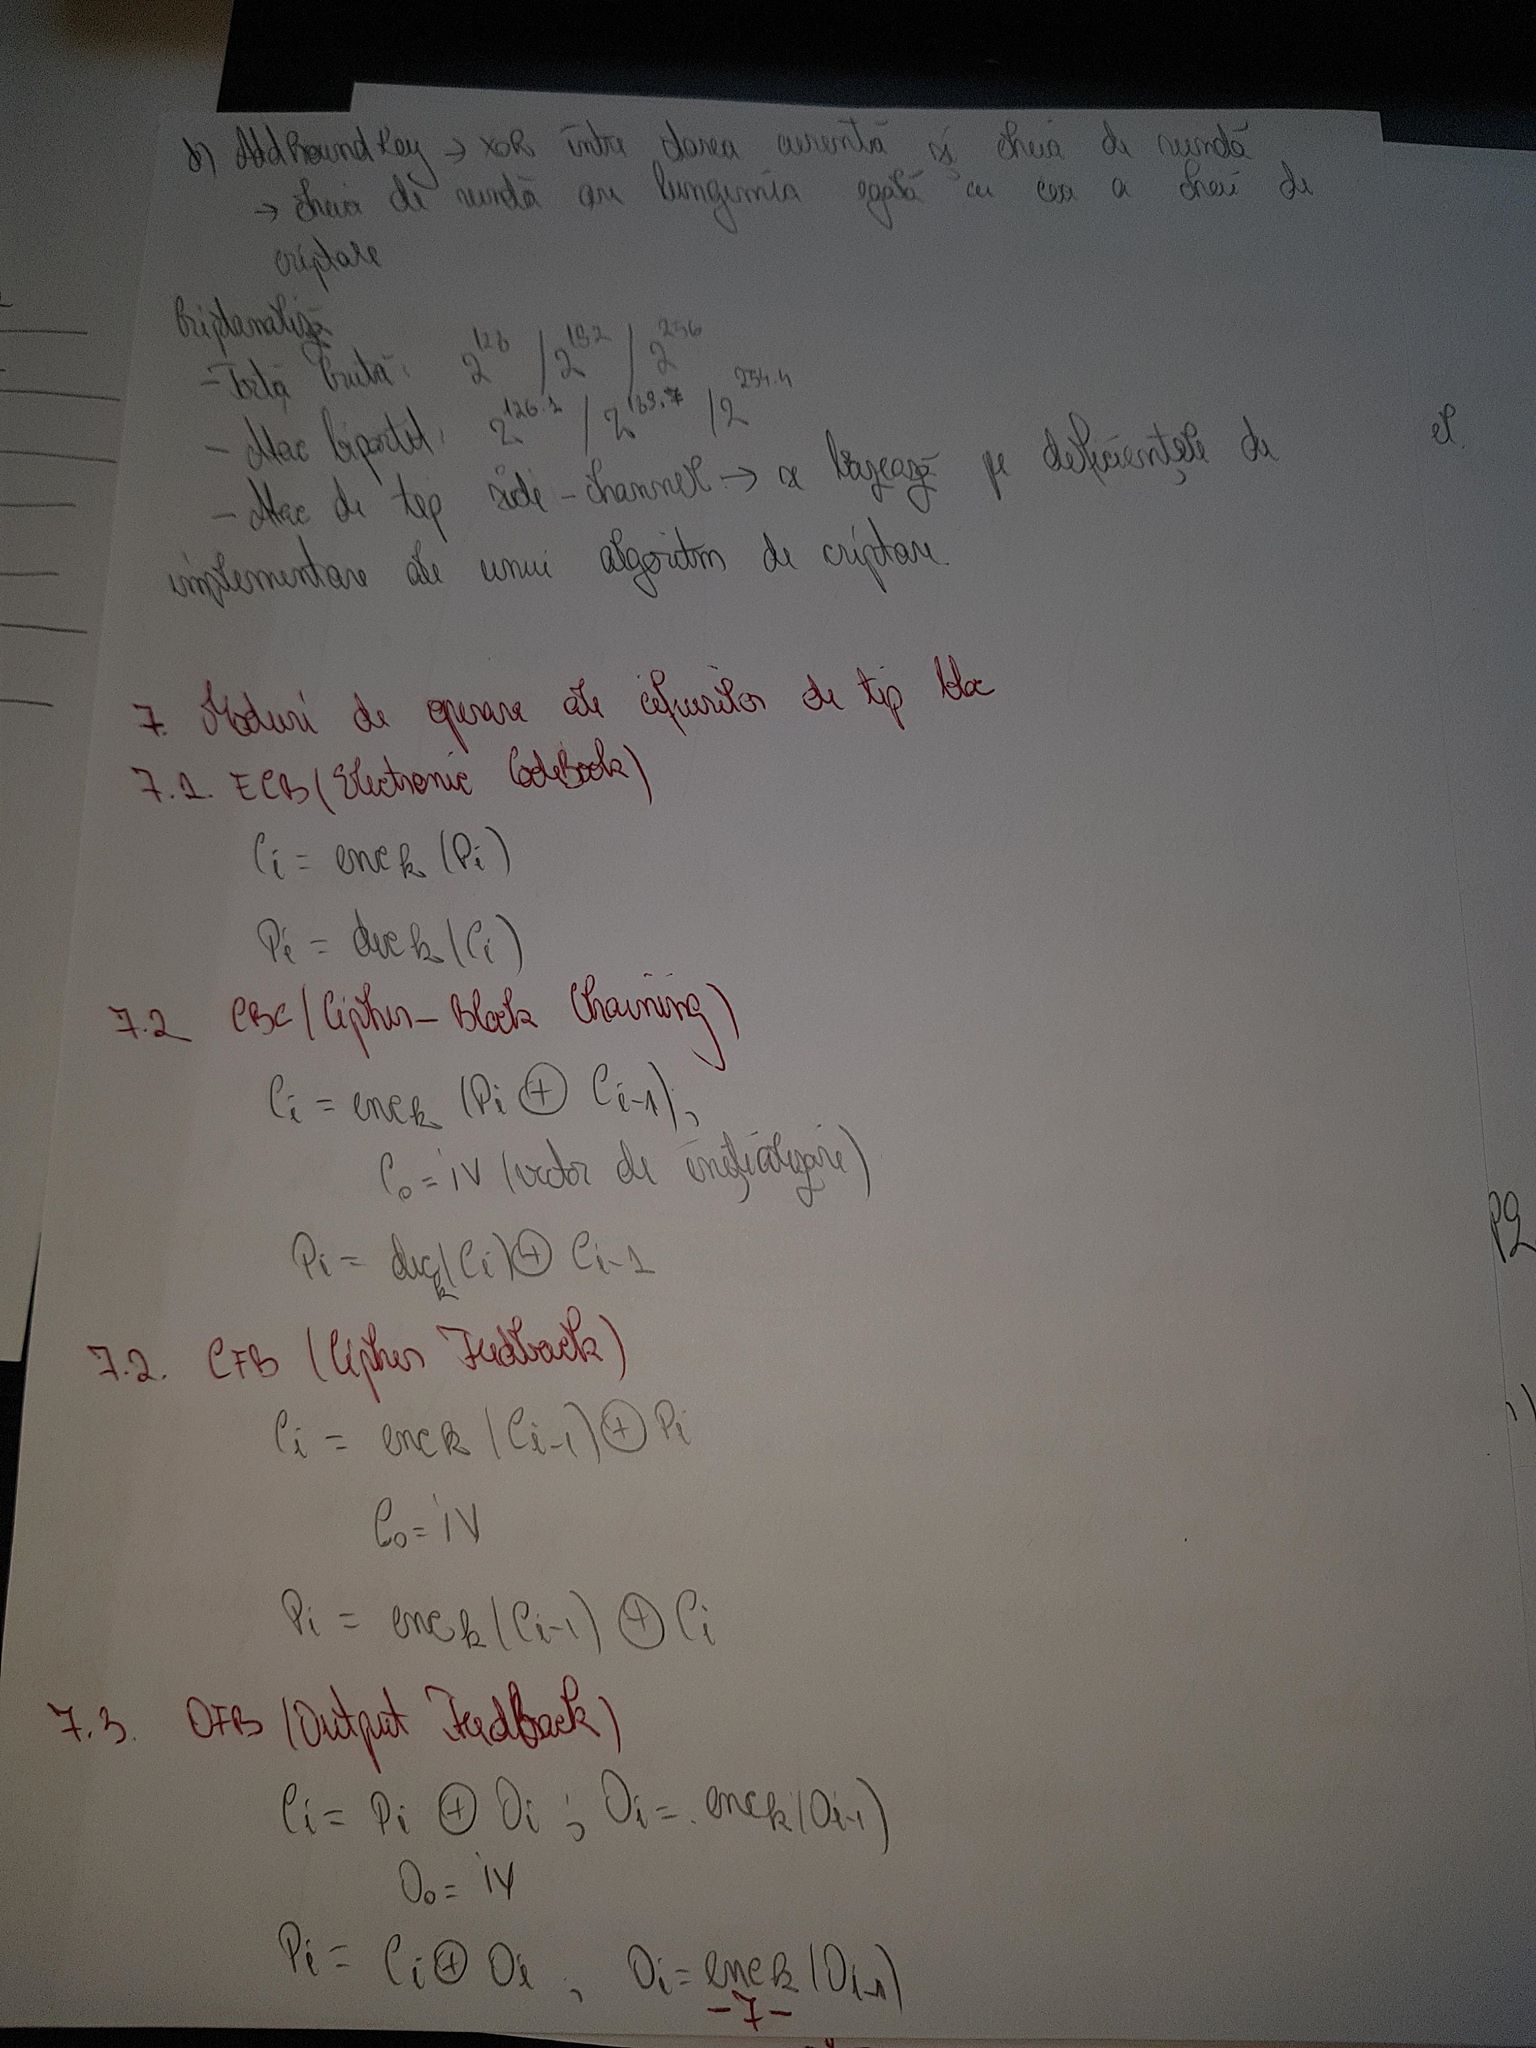 d) AddRoundKey → XOR între starea curentă și cheia de rundă
→ cheia de rundă are lungimea egală cu cea a cheii de
criptare
Criptanaliză
- Forță brută: 2^128 / 2^192 / 2^256
- Atac bipartid: 2^126.1 / 2^189.7 / 2^254.4
- Atac de tip side-channel → se bazează pe deficiențele de
implementare ale unui algoritm de criptare.
7. Moduri de operare ale cifrurilor de tip bloc
7.1. ECB (Electronic CodeBook)
Ci = enck (Pi)
Pi = deck (Ci)
7.2 CBC (Cipher-Block Chaining)
Ci = enck (Pi ⊕ Ci-1),
C0 = iv (vector de inițializare)
Pi = deck(Ci) ⊕ Ci-1
7.2. CFB (Cipher Feedback)
Ci = enck (Ci-1) ⊕ Pi
C0 = iv
Pi = enck (Ci-1) ⊕ Ci
7.3. OFB (Output FeedBack)
Ci = Pi ⊕ Oi ; Oi = enck (Oi-1)
O0 = iv
Pi = Ci ⊕ Oi , Oi = enck (Oi-1)
-7-